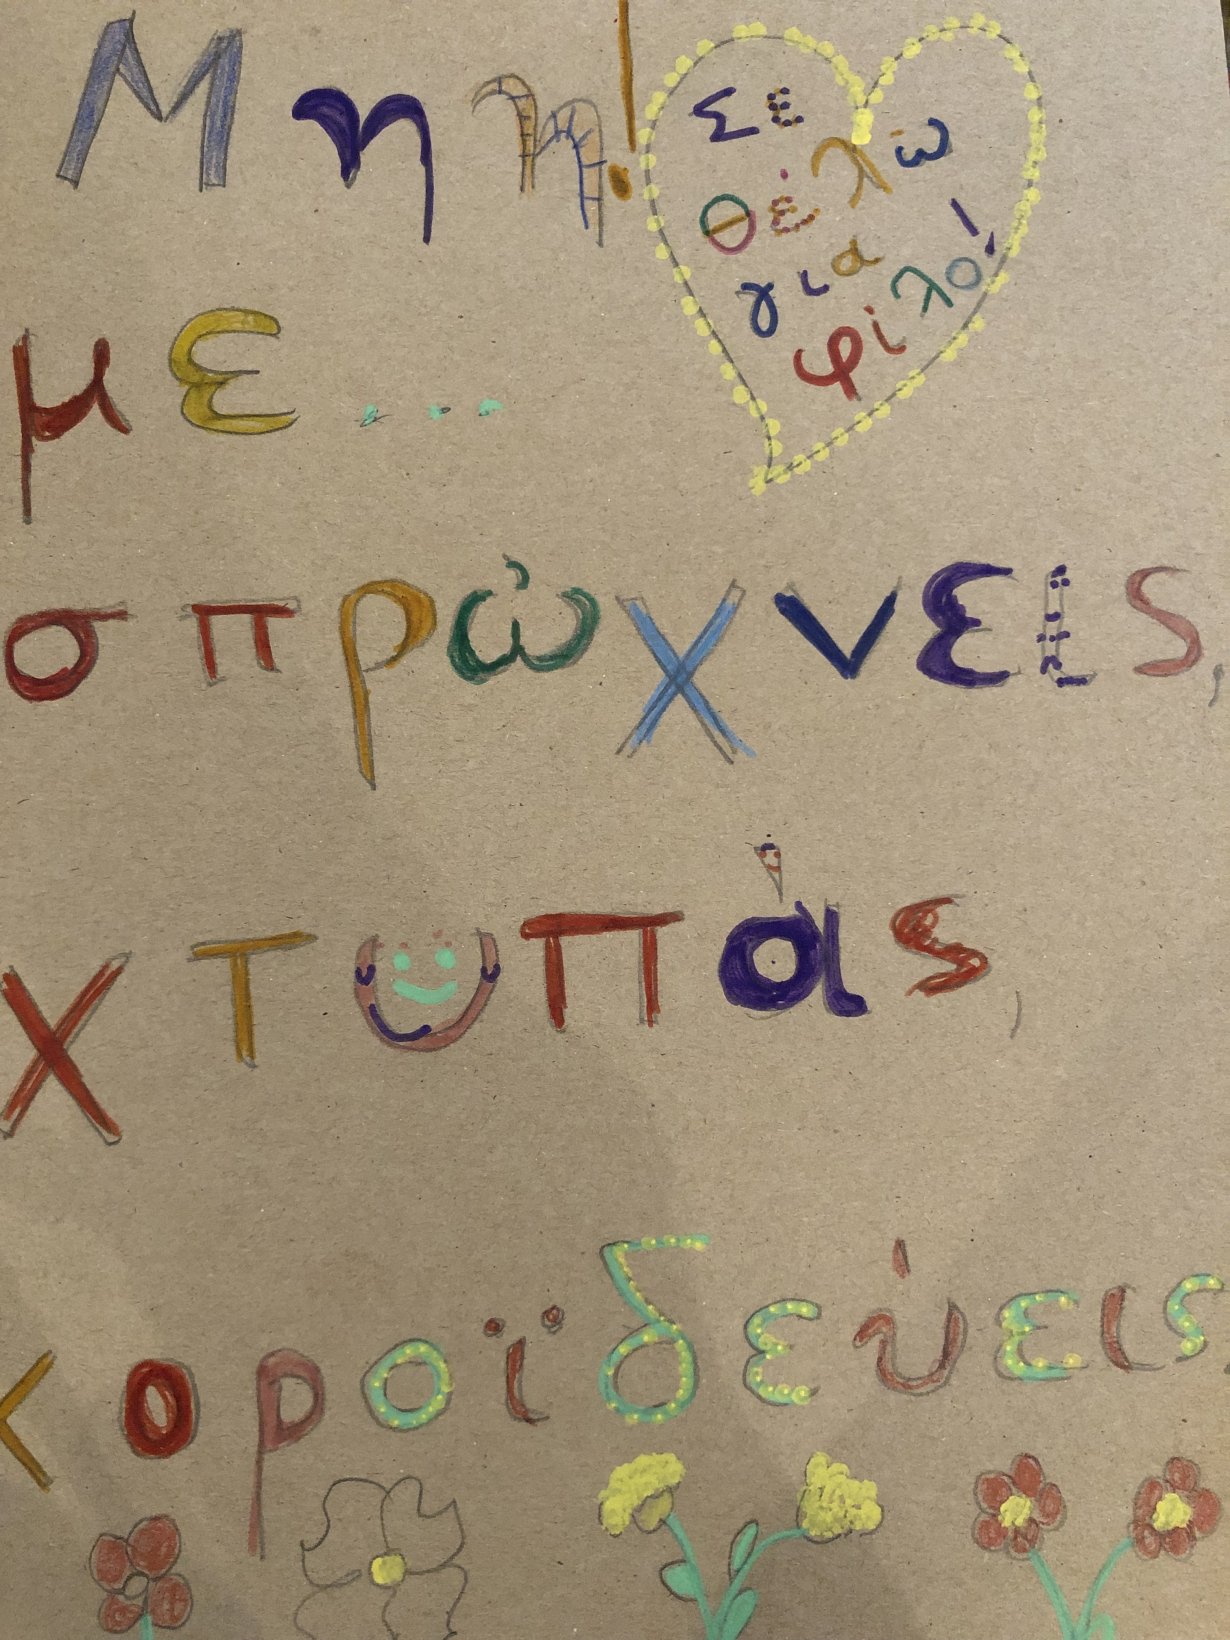 Μηη!
με...
σπρώχνεις,
χτυπάς,
κοροϊδεύεις
Σε
θέλω
για
φίλο!